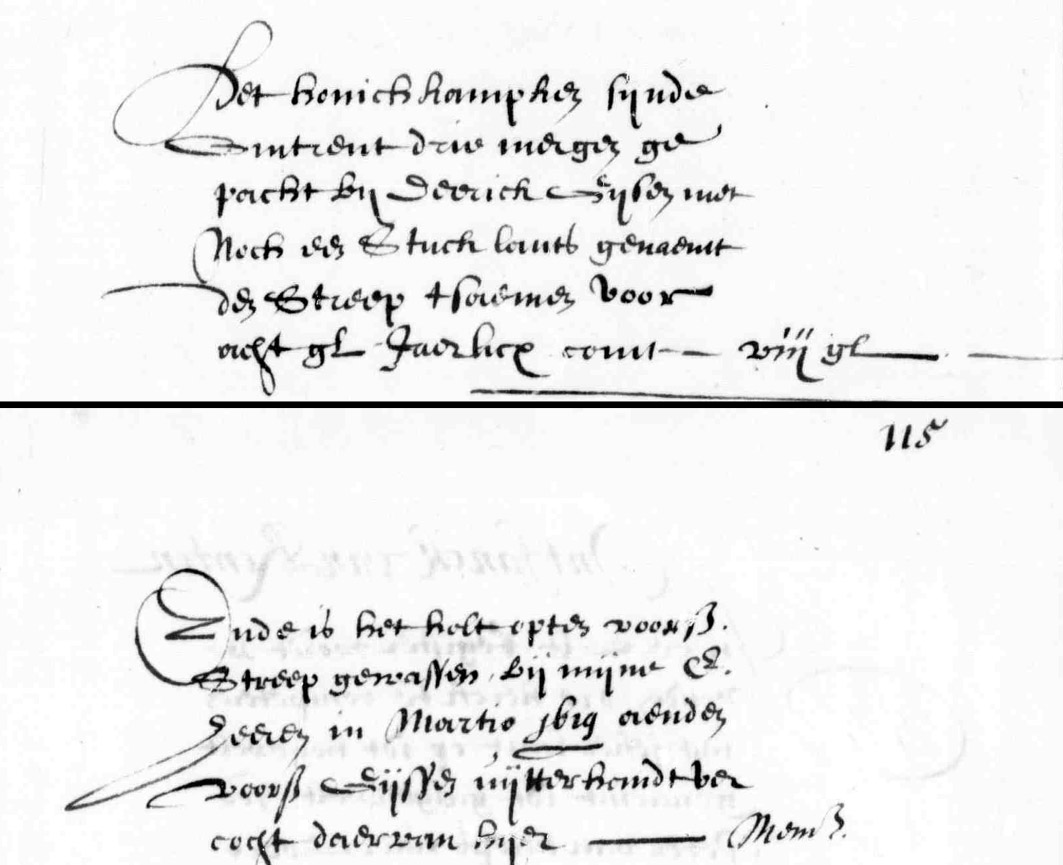 Het honich kampken sijnde
Omtrent drie mergen ge
pacht bij Derrick Gijsen met
Noch een Stuck lants genaemt
den Streep tsaemen voor
acht gl Jaerlicx comt – viij gl
115
Ende is het holt opten voorß.
Streep gewassen, bij mijne E.
heeren in Martio aenden
voorß Gijssen uijtterhandt ver
cocht daervan hijer — Memß.